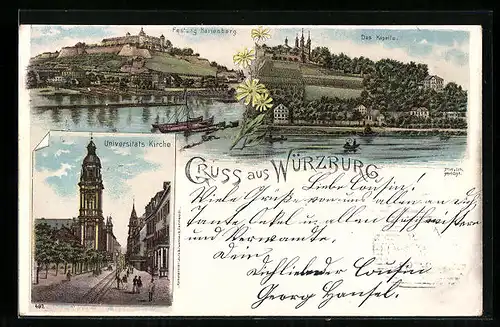 Festung Marienberg.
Das Kapelle.
Universitäts Kirche
GRUSS AUS WÜRZBURG
Liebe Cousin!
Viele Grüße von uns allen an die
Tante Onkel u. allen Geschwistern
und Verwandte,
Dein
Dich liebender Cousin
Georg Hansel.